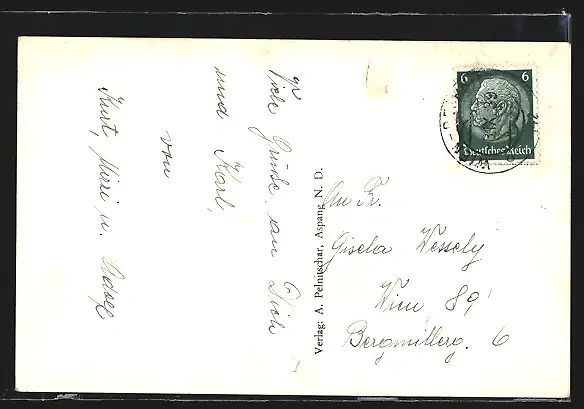 Viele Grüße an Dich
und Karl,
von
Kurt, Mizzi u. Adolf
Verlag: A. Pelnitschar, Aspang N. D.
An Fr.
Gisela Wessely
Wien 89
Bergmillerg. 6
6 6
Deutsches Reich